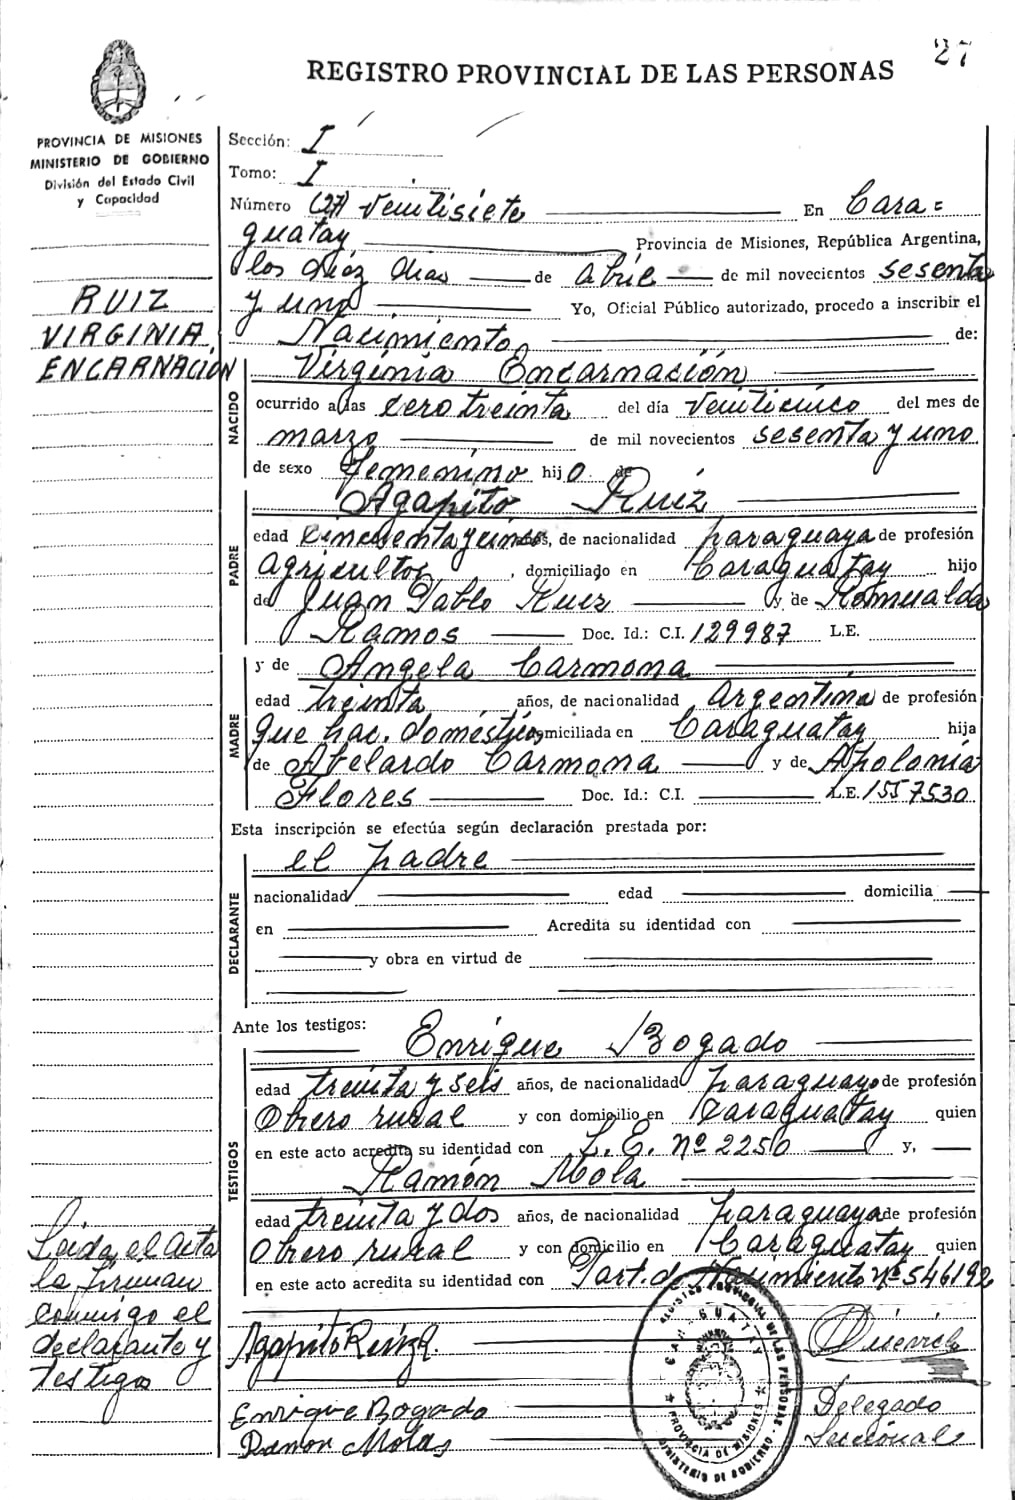 27
REGISTRO PROVINCIAL DE LAS PERSONAS
PROVINCIA DE MISIONES
MINISTERIO DE GOBIERNO
División del Estado Civil
y Capacidad
RUIZ
VIRGINIA
ENCARNACIÓN
Sección: I
Tomo: I
Número (27) Veintisiete En Cara=
guatay Provincia de Misiones, República Argentina,
a los diéz dias de abril de mil novecientos sesenta
y uno Yo, Oficial Público autorizado, procedo a inscribir el
Nacimiento de:
NACIDO
Virginia Encarnación
ocurrido a las cero treinta del día veinticinco del mes de
marzo de mil novecientos sesenta y uno
de sexo femenino hijo de
PADRE
Agapito Ruíz
edad cincuenta y cinco años, de nacionalidad paraguaya de profesión
agricultor, domiciliado en Caraguatay hijo
de Juan Pablo Ruiz y de Romualda
Ramos Doc. Id.: C.I. 129987 L.E.
MADRE
y de Angela Carmona
edad treinta años, de nacionalidad argentina de profesión
que hac. domésticos domiciliada en Caraguatay hija
de Abelardo Carmona y de Apolonia
Flores Doc. Id.: C.I. L.E. 1557530
Esta inscripción se efectúa según declaración prestada por:
DECLARANTE
el padre
nacionalidad edad domicilia
en Acredita su identidad con
y obra en virtud de
Ante los testigos:
TESTIGOS
Enrique Bogado
edad treinta y seis años, de nacionalidad paraguayo de profesión
Obrero rural y con domicilio en Caraguatay quien
en este acto acredita su identidad con L.E. nº 2250 y,
Ramón Mola
edad treinta y dos años, de nacionalidad paraguaya de profesión
Obrero rural y con domicilio en Caraguatay quien
en este acto acredita su identidad con Part. de Nacimiento nº 546192
Leida el acta
la firman
conmigo el
declarante y
testigos
Agapito Ruiz R.
Enrique Bogado
Ramon Molas
Delegado
Seccional
REGISTRO PROVINCIAL DE LAS PERSONAS
CARAGUATAY
PROVINCIA DE MISIONES
MINISTERIO DE GOBIERNO